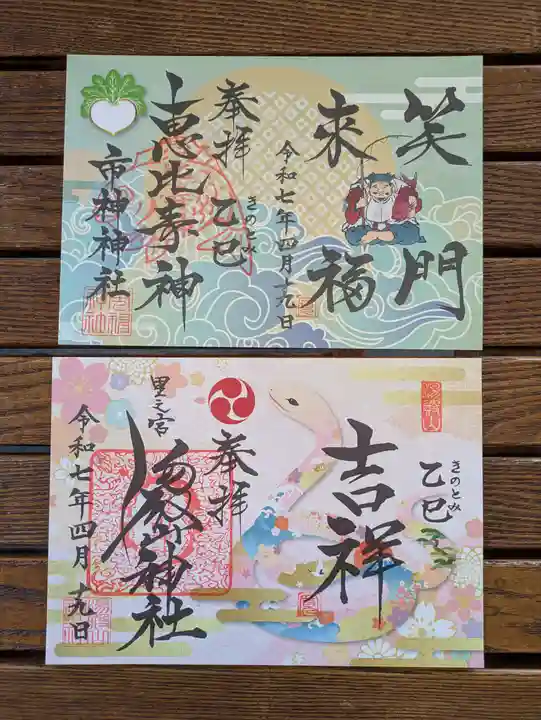 笑門
来福
令和七年四月十九日
奉拝
乙巳
きのとみ
恵比寿神
市神神社
乙巳
きのとみ
吉祥
奉拝
里之宮
湯殿山神社
令和七年四月十九日